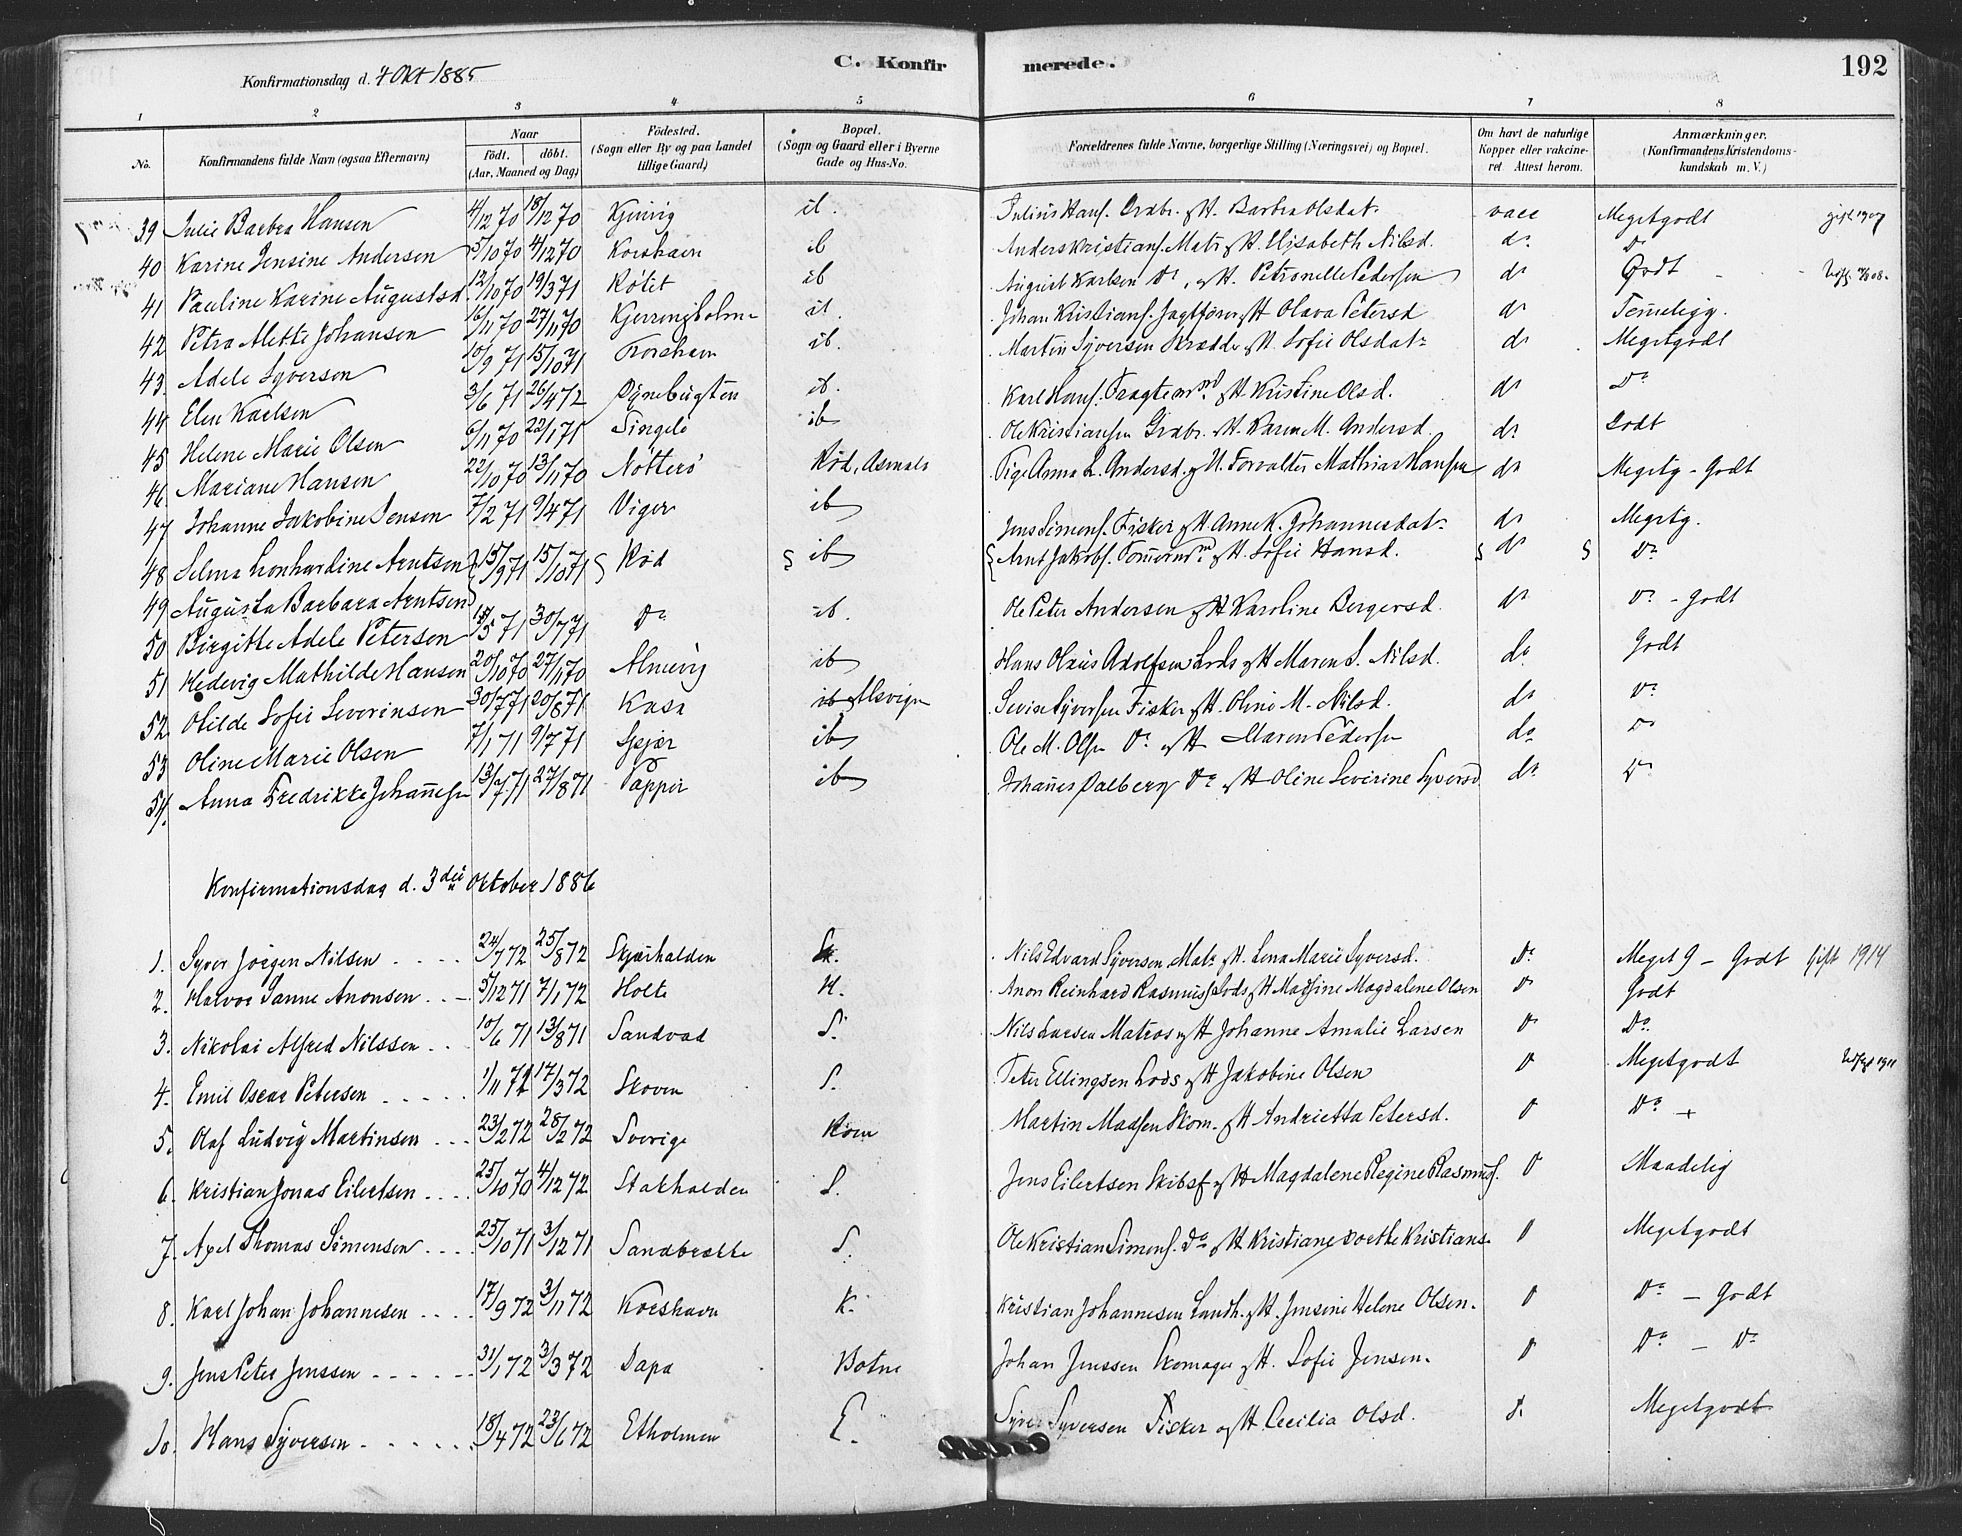 C. Konfirmerede. 192
Konfirmationsdag d. 4 Okt 1885
1 2 3 4 5 6 7 8
No. Konfirmandens fulde Navn (ogsaa Efternavn) Naar födt. döbt. (Aar, Maaned og Dag) Födested. (Sogn eller By og paa Landet tillige Gaard) Bopæl. (Sogn og Gaard eller i Byerne Gade og Hus-No. Forældrenes fulde Navne, borgerlige Stilling (Næringsvei) og Bopæl. Om havt de naturlige Kopper eller vakcineret. Attest herom. Anmærkninger. (Konfirmandens Kristendomskundskab m. V.)
39 Julie Barbra Hansen 4/12 70 18/12 70 Kjinvig ib. Julius Hans. Grdbr. og H. Barbra Olsdat. vacc Megetgodt gift 1907
40 Karine Jensine Andersen 5/10 70 4/12 70 Korshavn ib Anders Kristians. Matr og H. Elisabeth Nilsd. do Do
41 Pauline Karine Augustsd. 12/10 70 19/3 71 Røtet ib August Karlsen Do, og H. Petronelle Pedersen do Godt
42 Petra Mette Johansen 16/11 70 27/11 70 Kjerringholmen ib. Johan Kristians. Jagtfører og H Olava Petersd do Temmeligg.
43. Adele Syversen 10/9 71 15/10 71 Korshavn ib. Martin Syversen Skrædder og H. Sofie Olsdatr do Megetgodt
44 Elen Karlsen 3/6 71 26/4 72 Dynebugten ib. Karl Hans. Fragtemd og H Kristine Olsd. do Do
45 Helene Marie Olsen 6/11 70 22/1 71 Singelø ib Ole Kristiansen Grdbr. og H. Karen M. Andersd. do Godt
46 Mariane Hansen 22/10 70 13/11 70 Nøtterø Rød, Asmalø Pige Anna L. Andersd. og U. Forvalter Mathias Hansen do Megetg - Godt
47 Johanne Jakobine Jensen 7/2 71 9/4 71 Viger ib Jens Simens. Fisker og H. Anne K. Johannesdatr do Megetg.
48 Selma Leonhardine Arntsen } 15/9 71 15/10 71 } Rød } ib { Arnt Jakobs. Tømermd og H. Sofie Hansd. } do } Do
49 Augusta Barbara Arntsen }
50 Birgitte Adele Petersen 18/5 71 30/7 71 Do ib. Ole Peter Andersen og H Karoline Bergersd. do Do - Godt
51 Hedevig Mathilde Hansen 20/10 70 27/11 70 Almevig ib Hans Olaus Adolfsen Lods og H Maren S. Nilsd. do Godt
52. Otilde Sofie Severinsen 30/7 71 20/8 71 Kasa ib Alsvigen Sevrin Syversen Fisker og H. Oline M. Nilsd. do Do
53 Oline Marie Olsen 7/1 71 9/7 71 Spjær ib Ole M. Olsen Do og H Maren Pedersen do Do
54. Anna Fredrikke Johannesen 13/7 71 27/8 71 Papper ib Johanes Dalberg Do og H Oline Severine Syversd do Do
Konfirmationsdag d. 3die Oktober 1886
1. Syver Jørgen Nilsen 24/7 72 25/8 72 Skjærhalden Sk. Nils Edvard Syversen, Matr og H. Lena Marie Syversd. Do Meget g - Godt Gift 1914
2. Halvor Sanne Anonsen 5/12 71 7/1 72 Holte H. Anon Reinhard Rasmuss Lods og H Mathine Magdalene Olsen D Godt
3. Nikolai Alfred Nilssen 10/6 71 13/8 71 Sandvad S. Nils Larsen Matros og H Johanne Amalie Larsen D Do
4. Emil Oscar Petersen 1/11 72 17/3 72 Skoven S. Peter Ellingsen Lods og H Jakobine Olsen D Megetgodt
5. Olaf Ludvig Martinsen 23/2 72 28/2 72 Sverige Røen Martin Madsen Skom. og H Andrietta Petersd. D Do +
6. Kristian Jonas Eilertsen 25/10 70 4/12 72 Stakhalden S. Jens Eilertsen Skibsf og H Magdalene Regine Rasmuss. D Maadelig
7. Axel Thomas Simensen 25/10 71 3/12 71 Sandbrække S. Ole Kristian Simens. Do og H Kristiane Dorthe Kristians. D Megetgodt
8. Karl Johan Johannesen 17/9 72 3/11 72 Korshavn K. Kristian Johannesen Landh. og H. Jensine Helene Olsen. D Do - Godt
9. Jens Peter Jenssen 31/1 72 3/3 72 Papa Botne Johan Jenssen Skomager og H. Sofie Jensen. D Do - Do
10. Hans Syversen 18/4 72 23/6 72 Etholmen E. Syver Syversen Fisker og H Cecilia Olsd. d. Megetgodt